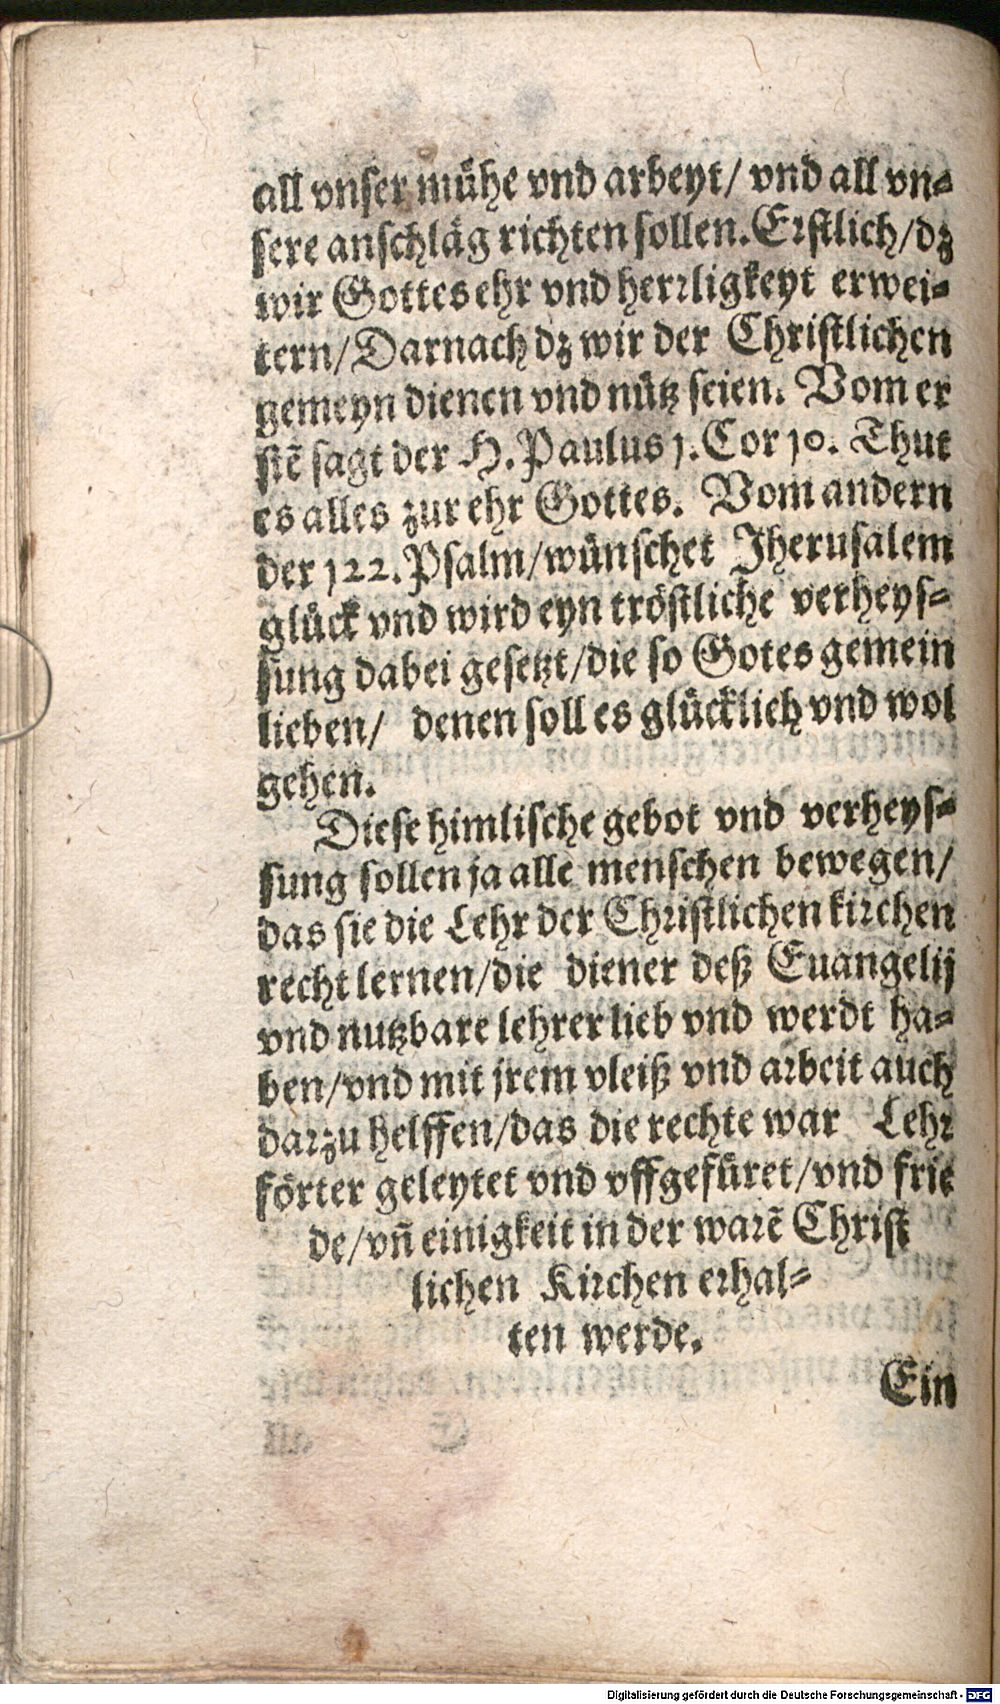 all vnser mühe vnd arbeyt/ vnd all vn⸗
sere anschläg richten sollen. Erstlich/dz
wir Gottes ehr vnd herrligkeyt erwei⸗
tern/ Darnach dz wir der Christlichen
gemeyn dienen vnd nütz seien. Vom er
stẽ sagt der H. Paulus 1. Cor 10. Thut
es alles zur ehr Gottes. Vom andern
der 122. Psalm/wünschet Jherusalem
glück vnd wird eyn tröstliche verheys⸗
sung dabei gesetzt/die so Gotes gemein
lieben/ denen soll es glücklich vnd wol
gehen.
Diese himlische gebot vnd verheys⸗
sung sollen ja alle menschen bewegen/
das sie die Lehr der Christlichen kirchen
recht lernen/die diener deß Euangelij
vnd nutzbare lehrer lieb vnd werdt ha⸗
ben/vnd mit jrem vleiß vnd arbeit auch
darzu helffen/das die rechte war Lehr
förter geleytet vnd vffgefüret/vnd frie
de/vñ einigkeit in der warẽ Christ
lichen Kirchen erhal⸗
ten werde.
Ein
Digitalisierung gefördert durch die Deutsche Forschungsgemeinschaft - DFG